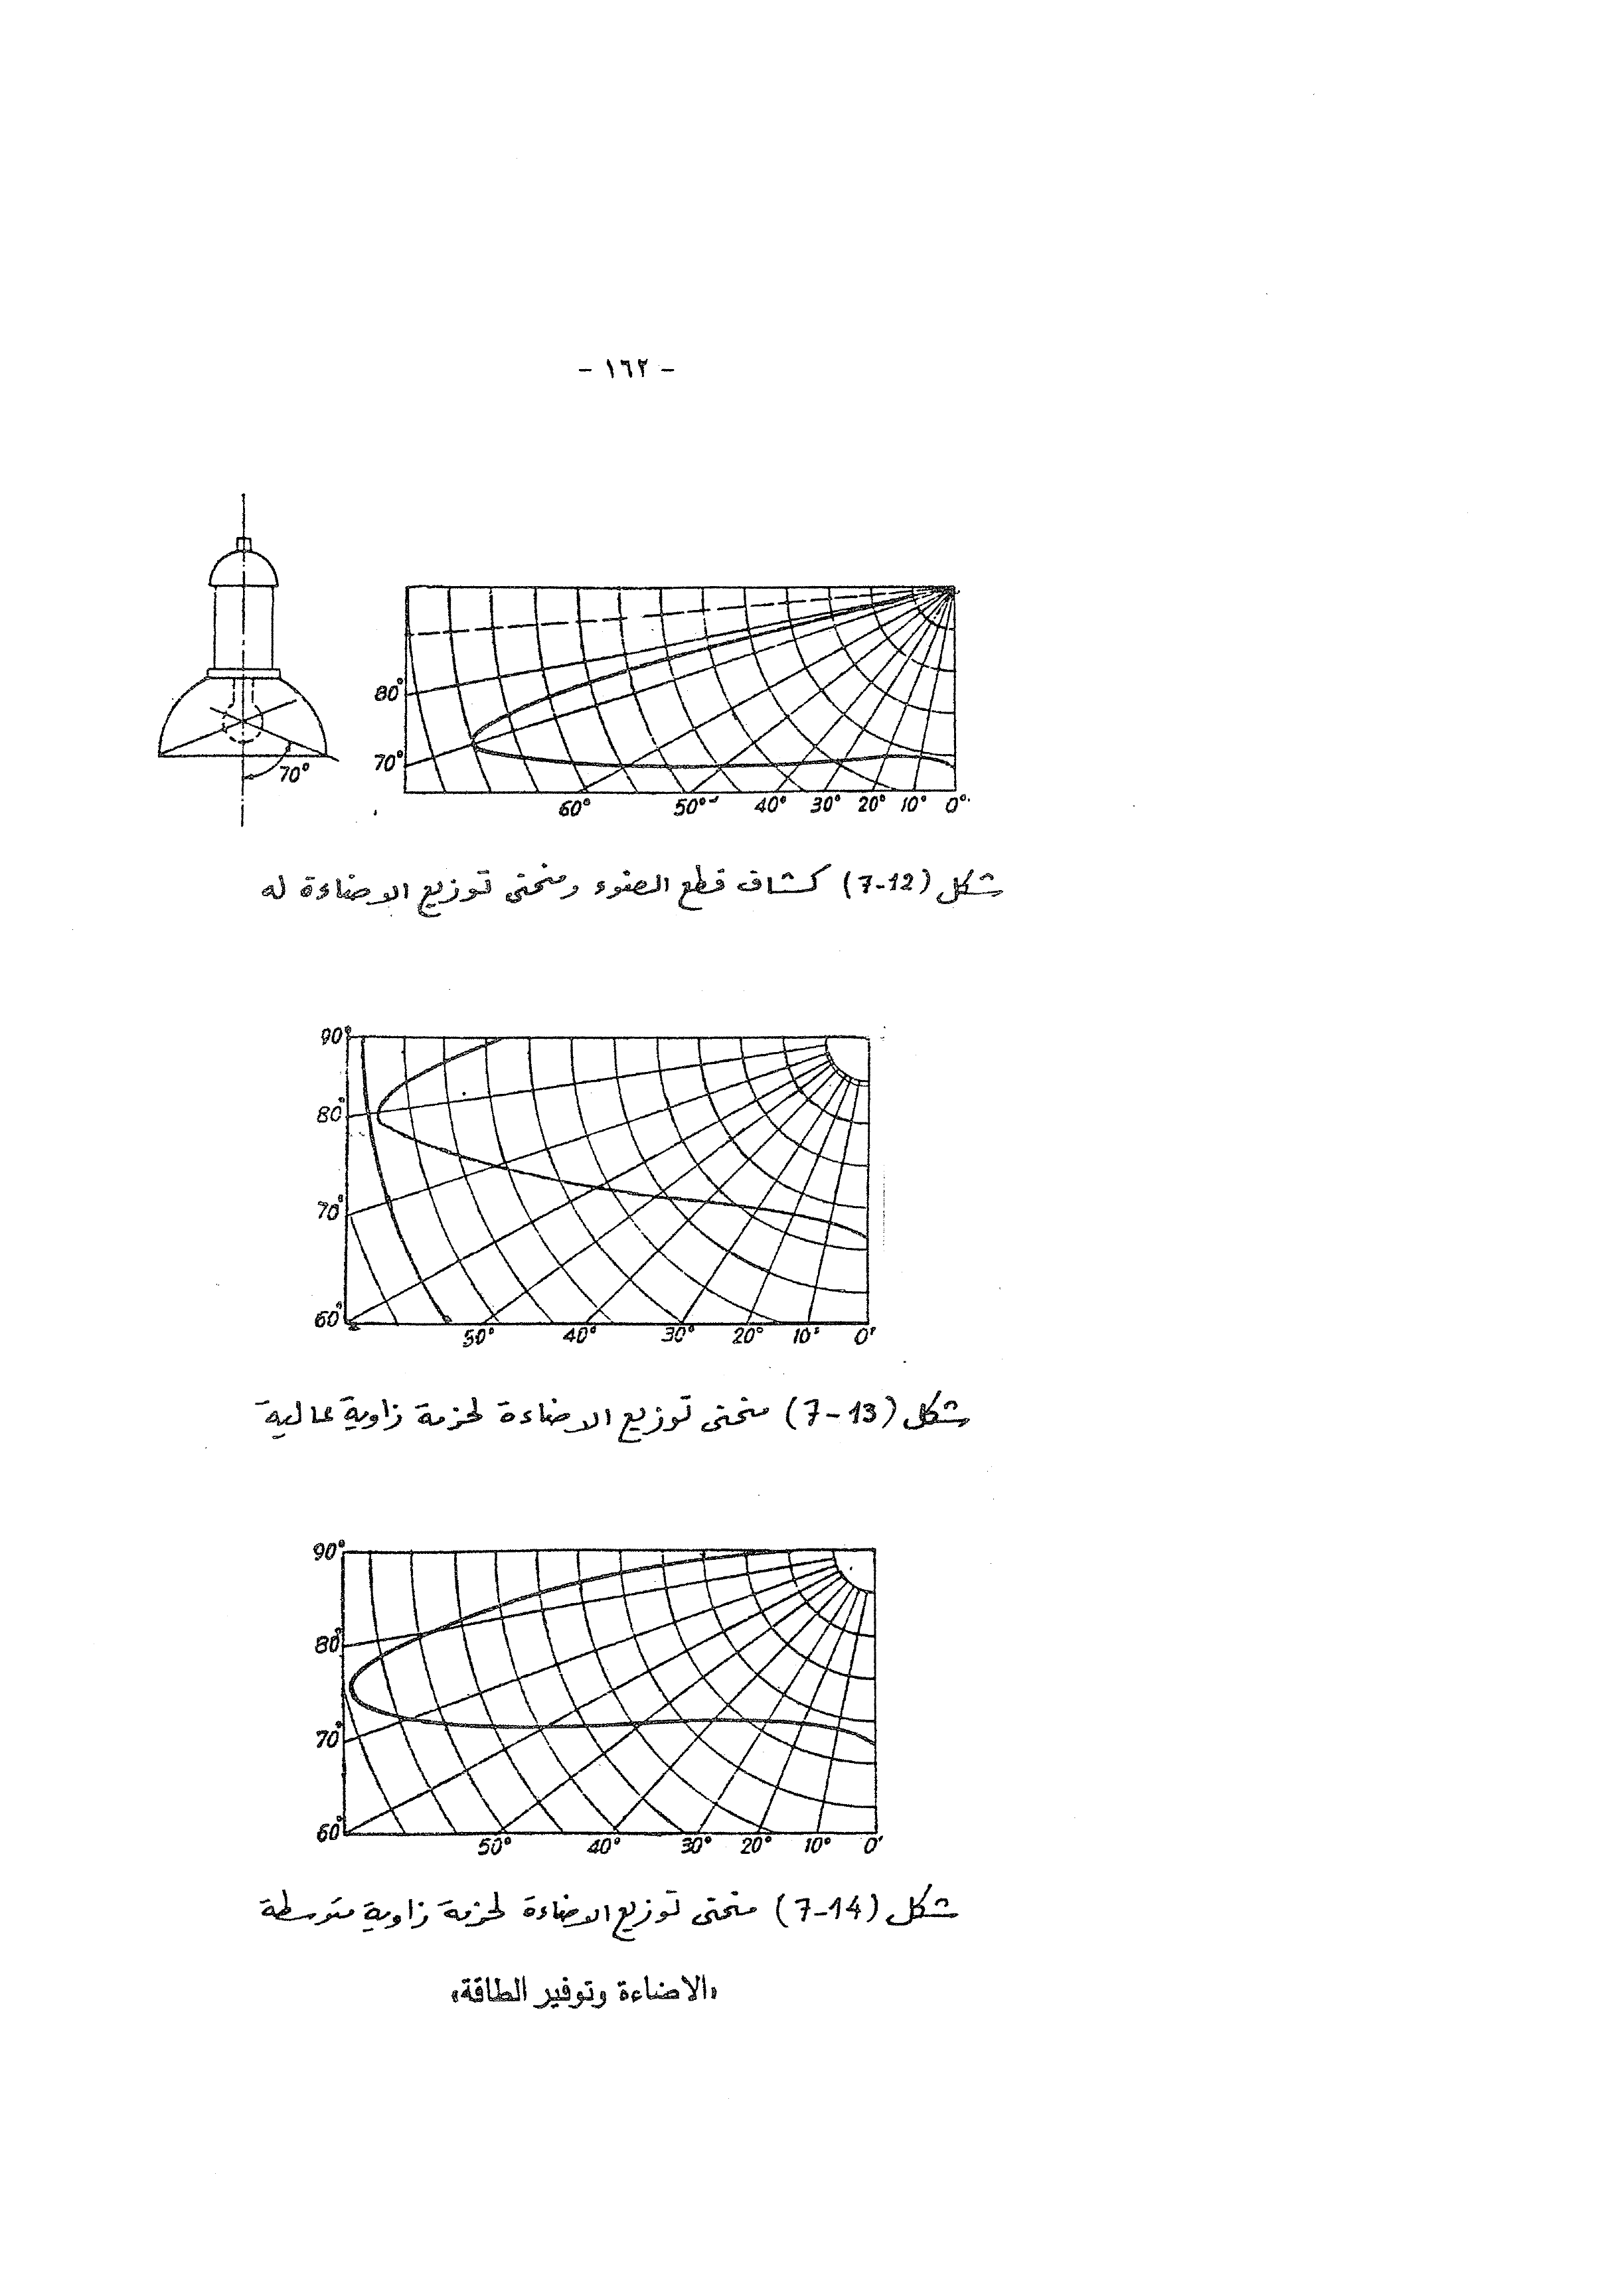 - ١٦٢ -
80°
70°
70°
60° 50° 40° 30° 20° 10° 0°
شكل (7-12) كشاف قطع الضوء ومنحنى توزيع الاضاءة له
90°
80°
70°
60°
50° 40° 30° 20° 10° 0°
شكل (7-13) منحنى توزيع الاضاءة لحزمة زاوية عالية
90°
80°
70°
60°
50° 40° 30° 20° 10° 0°
شكل (7-14) منحنى توزيع الاضاءة لحزمة زاوية متوسطة
«الاضاءة وتوفير الطاقة»